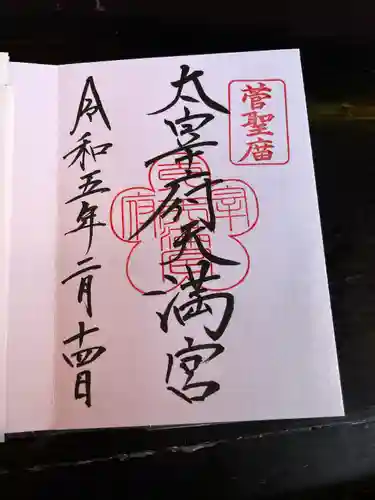 菅聖廟
太宰府天満宮
令和五年二月十四日